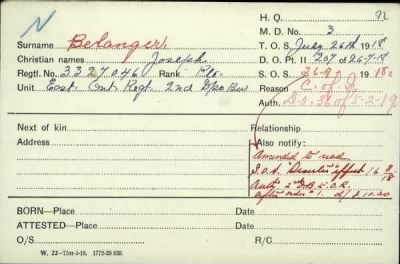 N
H. Q. 92
M. D. No. 3
Surname Belanger,
T. O. S. July 26th 1918
Christian names Joseph
D. O. Pt. II 207 of 26-7-18
Regtl. No. 3327046 Rank Pte.
S. O. S. 1918
Unit East. Ont. Regt. 2nd Depo Bn
Reason
Auth. D.O. 36 of 5-2-19
Next of kin
Relationship
Address
Also notify:
Amended to read
S.O.S. "Deserter" effect 16
Auth.
BORN—Place
Date
ATTESTED—Place
Date
O/S
R/C